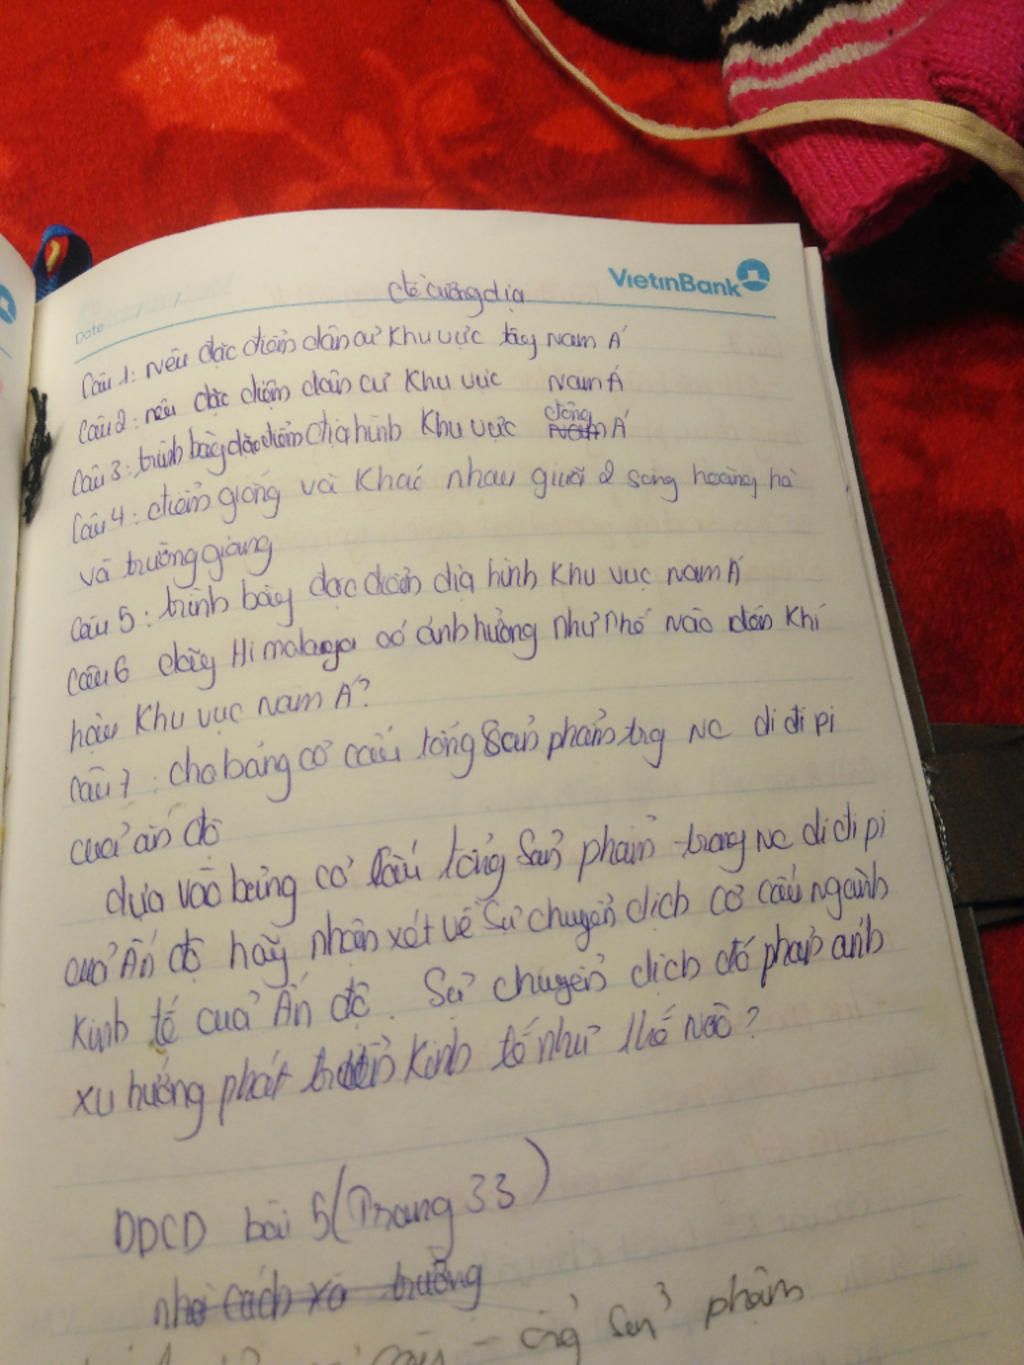 đề cương địa
VietinBank
Date
Câu 1: Nêu đặc điểm dân cư Khu vực tây Nam Á
Câu 2: nêu đặc điểm dân cư Khu vực Nam Á
Câu 3: trình bày đặc điểm địa hình Khu vực đông Á
Câu 4: điểm giống và Khác nhau giưã 2 song hoàng hà
và trường giang
Câu 5: trình bày đặc điểm địa hình Khu vực nam Á
Câu 6 dãy Himalaya có ảnh hưởng như thế nào đến khí
hậu Khu vực nam Á?
Câu 7: cho bảng cơ cấu tổng sản phẩm trg nc di đi pi
cuả ấn độ
dựa vào bảng cơ cấu tổng sản phẩm trong nc di đi pi
cuả Ấn độ hãy nhận xét về sự chuyển dịch cơ cấu ngành
Kinh tế cuả Ấn độ. Sự chuyển dịch đó phản ánh
xu hướng phát triển Kinh tế như thế nào?
DDCD bài 5 (Trang 33)
sản phẩm